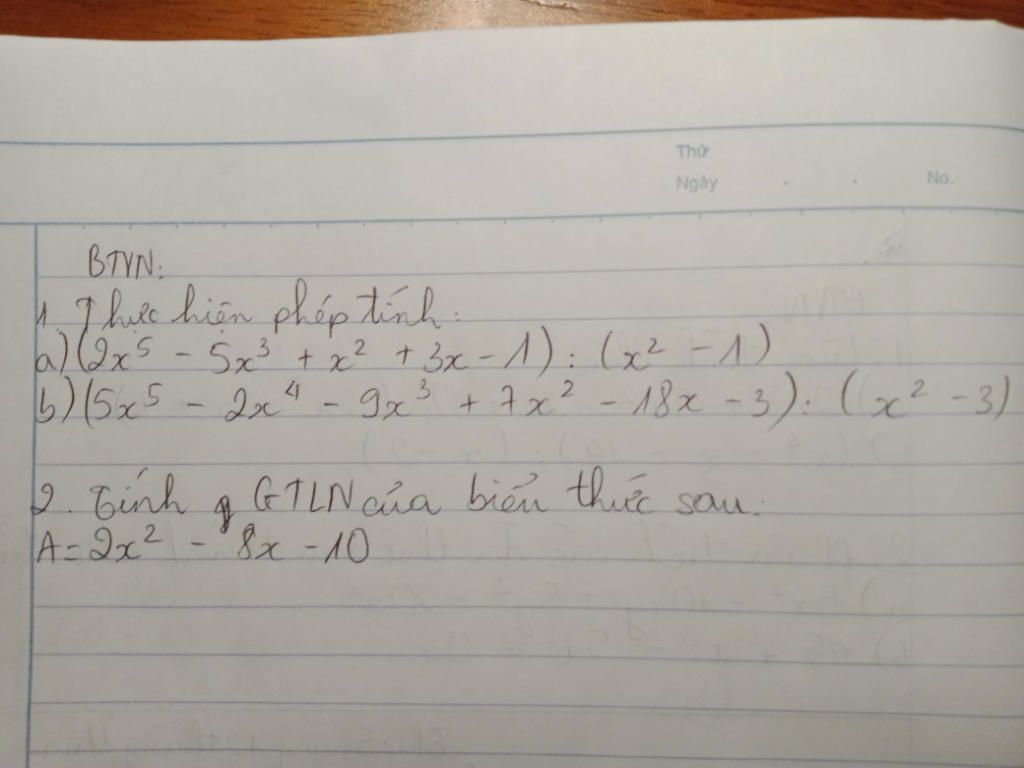 Thứ
Ngày . . No.
BTVN:
1. Thực hiện phép tính:
a) (2x⁵ - 5x³ + x² + 3x - 1) : (x² - 1)
b) (5x⁵ - 2x⁴ - 9x³ + 7x² - 18x - 3) : (x² - 3)
2. Tính GTLN của biểu thức sau:
A = 2x² - 8x - 10